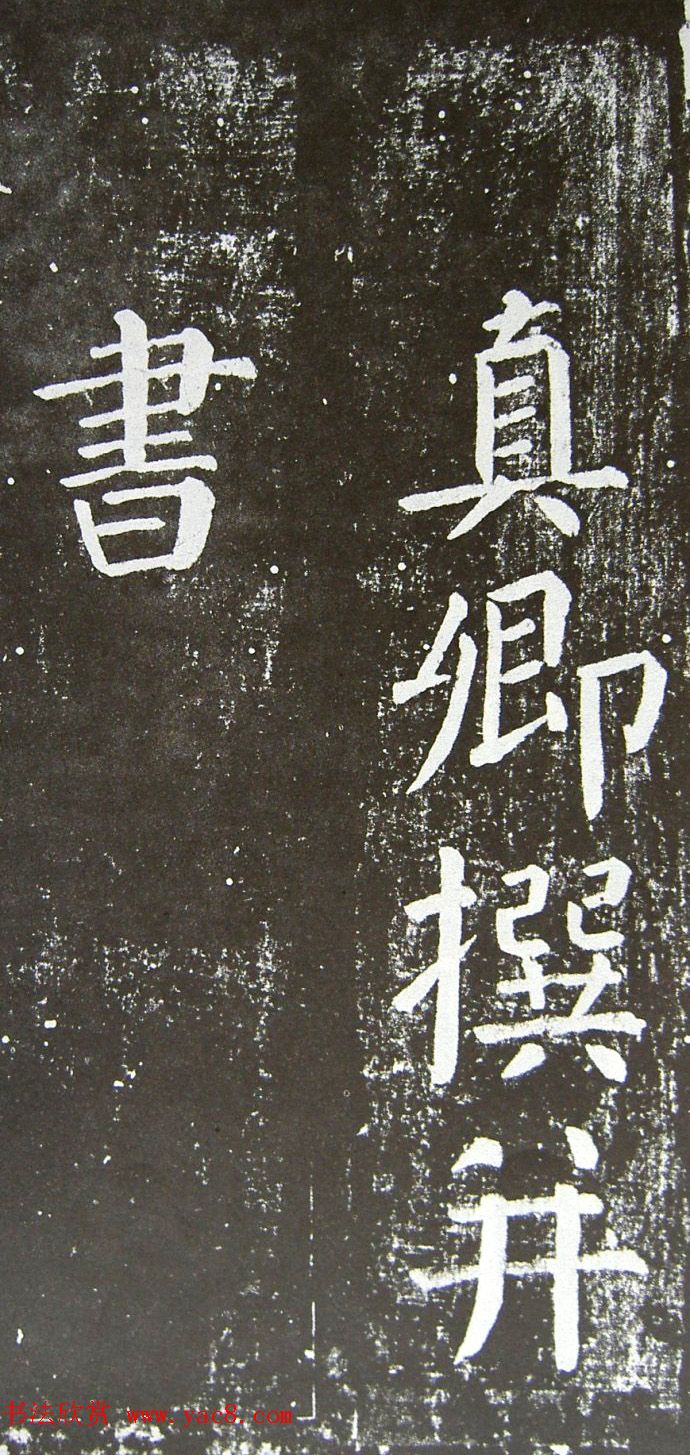 真卿撰并
書
书法欣赏 www.yac8.com